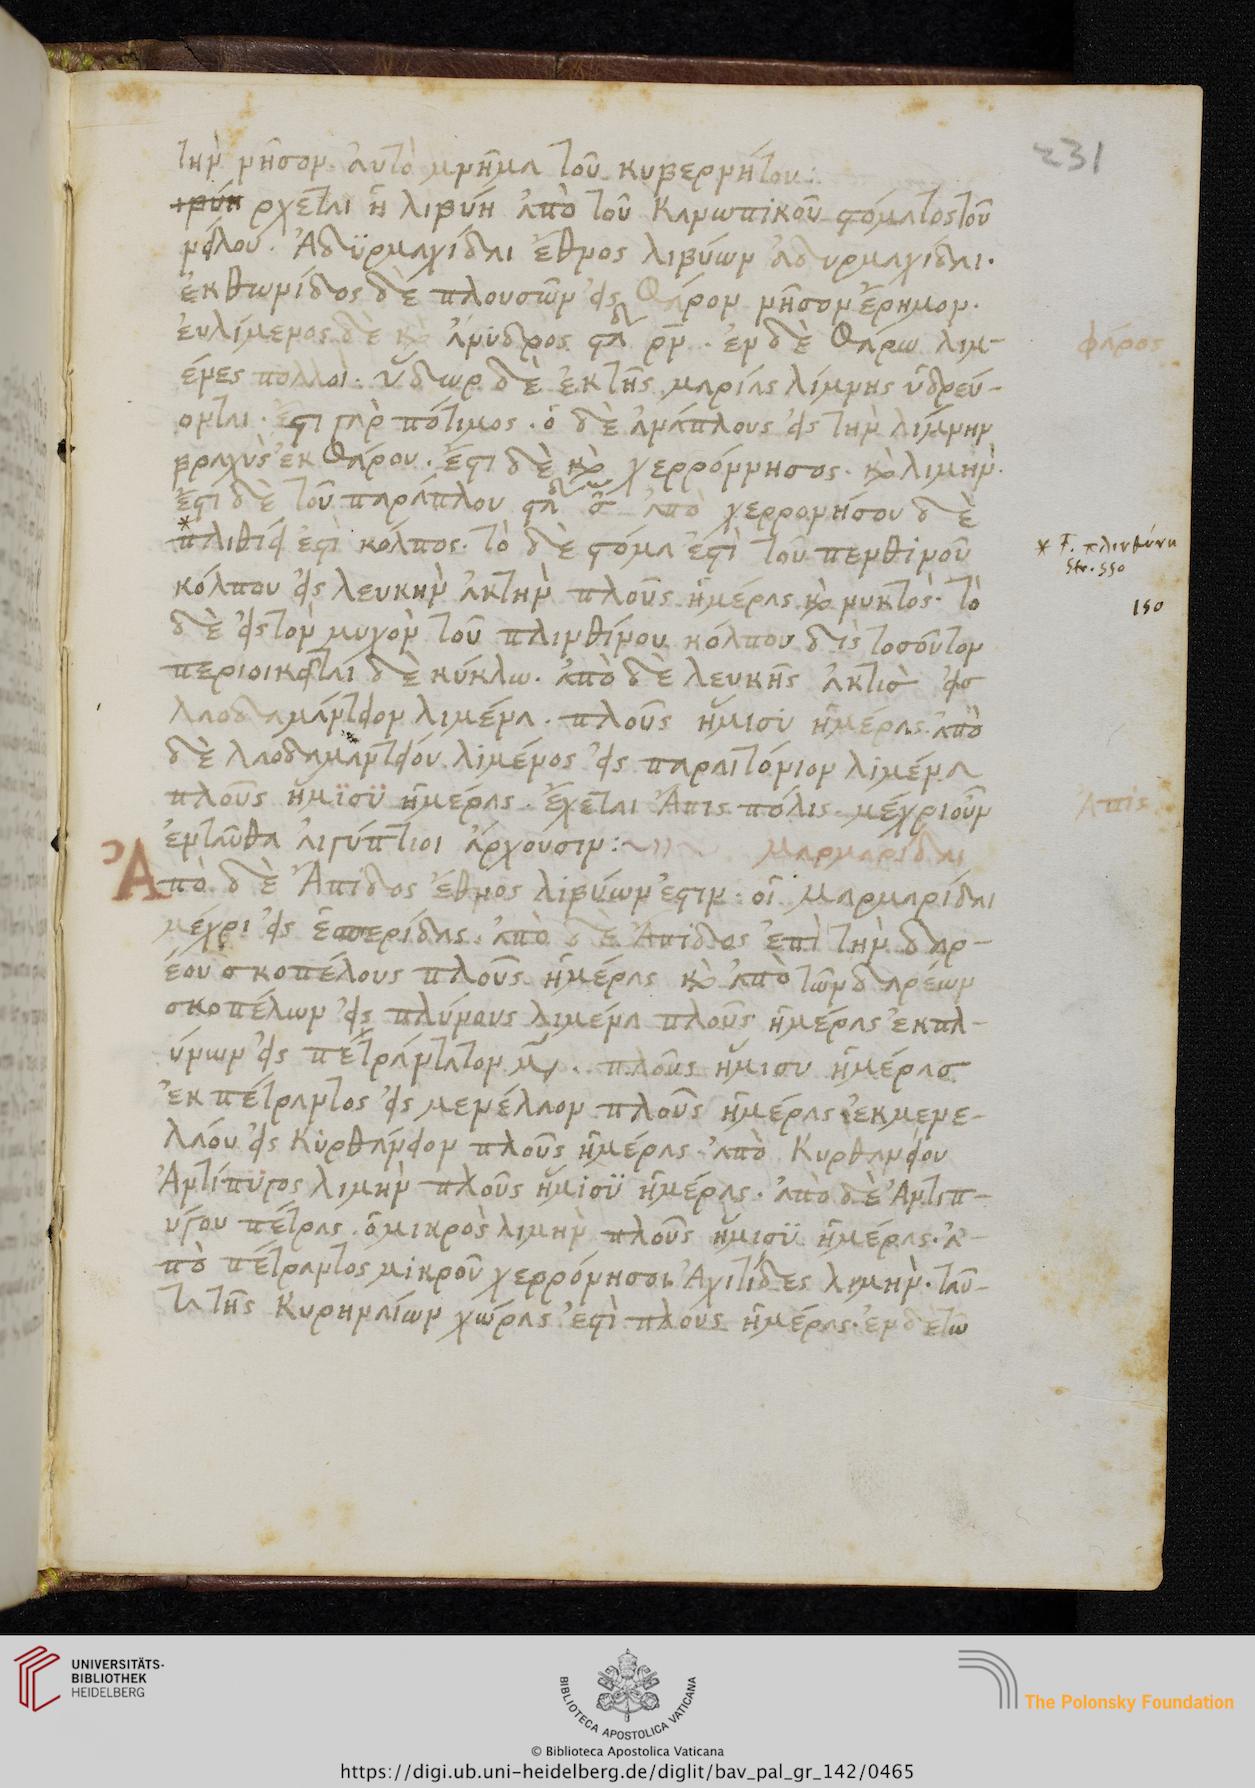 231
τὴν νῆσον αὐτὸ μνῆμα τοῦ κυβερνήτου:
ρχεται ἡ λιβύη ἀπὸ τοῦ Κανωπικοῦ στόματος τοῦ
νείλου. Ἀδϋρμαχίδαι ἔθνος λιβύων ἀδυρμαχίδαι.
ἐκ θωνίδος δὲ πλοῦσῶν εἰς Φάρον νῆσον ἔρημον.
ἐυλίμενος δὲ καὶ ἄνυδρος στα ρν. ἐν δὲ Φάρω λιμ-
φάρος
ένες πολλοὶ. ὕδωρ δὲ ἐκ τῆς μαρίας λίμνης ὑδρεύ-
ονται. ἔστι γὰρ πότιμος. ὁ δὲ ἀνάπλους εἰς τὴν λίμνην
βραχὺς ἐκ Φάρου. ἔστι δὲ καὶ χερρόννησος. καὶ λιμὴν.
ἔστι δὲ τοῦ παράπλου στα σ ἀπὸ χερρονήσου δὲ
* πλιθίει ἐστὶ κόλπος. τὸ δὲ στόμα ἐστὶ τοῦ πενθινοῦ
* F. πλινθίνη
Str. 550
κόλπου εἰς λευκὴν ἀκτὴν πλοῦς ἡμέρας καὶ νυκτὸς. τὸ
150
δὲ εἰς τὸν μυχὸν τοῦ πλινθίνου κόλπου δὶς τοσοῦτον
περιοικεῖται δὲ κύκλω. ἀπὸ δὲ λευκῆς ἀκτισ εἰσ
λαοδαμάντειον λιμένα. πλοῦς ἥμισὺ ἡμέρας. ἀπὸ
δὲ λαοδαμαντείου λιμένος εἰς παραιτόνιον λιμένα
πλοῦς ἥμϊσϋ ἡμέρας. ἔχεται Ἄπις πόλις. μέχρι οὖν
Ἄπις
ἐνταῦθα ἀιγύπτιοι ἄρχουσιν:
Μαρμαρίδαι
Ἀπὸ δὲ Ἄπιδος ἔθνος λιβύων ἐστιν. οἱ Μαρμαρίδαι
μέχρι εἰς ἑσπερίδας. ἀπὸ δὲ Ἄπιδος ἐπὶ τὴν δαρ-
έου σκοπέλους πλοῦς ἡμέρας καὶ ἀπὸ τῶν δαρέων
σκοπέλων εἰς πλύνους λιμένα πλοῦς ἡμέρας ἐκ πλ-
ύνων εἰς πέτράντατον .. πλοῦς ἥμισυ ἡμέρασ
ἐκ πέτραντος εἰς μενέλαον πλοῦς ἡμέρας. ἐκ μενε-
λάου εἰς Κύρθανειον πλοῦς ἡμέρας. ἀπὸ Κυρθανείου
Ἀντίπϋγος λιμὴν πλοῦς ἥμισϋ ἡμέρας. ἀπὸ δὲ Ἀντιπ-
ύγου πέτρας. ὁ μικρὸς λιμὴν πλοῦς ἥμισϋ ἡμέρας. ἀ-
πὸ πέτραντος μικροῦ χερρόνησοι Ἀχιτίδες λιμὴν. ταῦ-
τα τῆς Κυρηναίων χώρας ἐστὶ πλοῦς ἡμέρας. ἐν δε τῶ
UNIVERSITÄTS-
BIBLIOTHEK
HEIDELBERG
BIBLIOTECA APOSTOLICA VATICANA
The Polonsky Foundation
© Biblioteca Apostolica Vaticana
https://digi.ub.uni-heidelberg.de/diglit/bav_pal_gr_142/0465